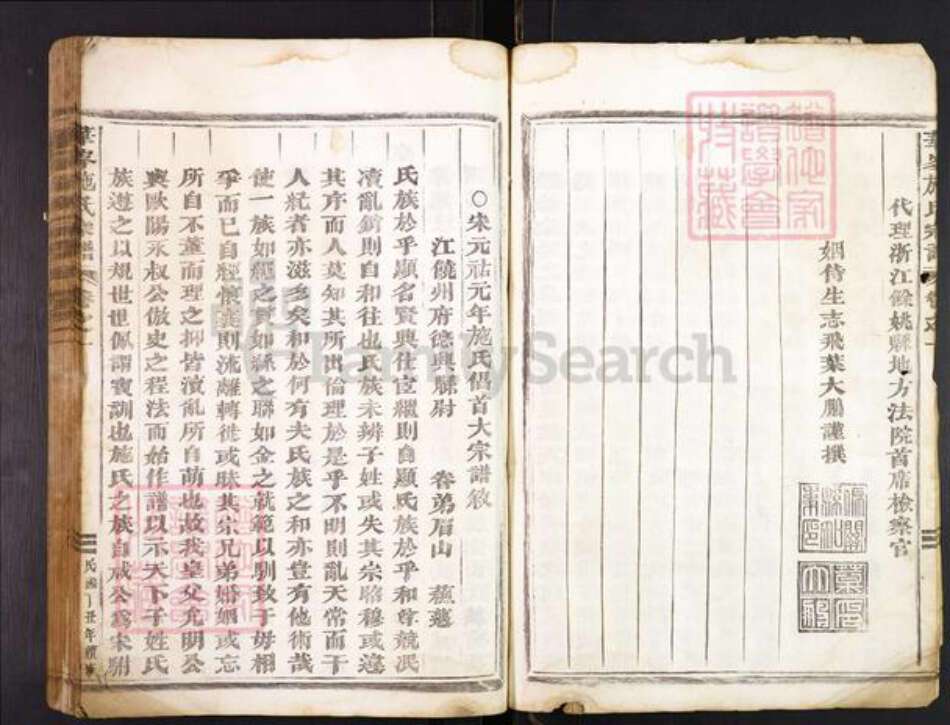 代理浙江餘姚縣地方法院首席檢察官
姻侍生志飛葉大鵬謹撰
○宋元祐元年施氏倡首大宗譜敘
江饒州府德興縣尉 眷弟眉山 蘇
氏族於乎顯名賢興仕宦繼則自顯氏族於乎和尊競泯
瀆亂銷則自和往也氏族未辨子姓或失其宗昭穆或違
其序而人莫知其所出倫理於是乎不明則亂天常而干
人紀者亦滋多矣和於何有夫氏族之和亦豈有他術哉
使一族如之貫如絲之聯如金之就範以馴致于毋相
乎而已自經懷則流離轉徙或昧其宗兄弟婚姻或忘
所自不董而理之抑皆瀆亂所自萌也故我皇父允明公
與歐陽永叔公倣史之程法而始作譜以示天下子姓氏
族遵之以規世世佩謂寶訓也施氏之族自成公為宋駙
華 施氏宗譜
卷之一
民國丁丑年續修
譜學會
珍藏
FamilySearch